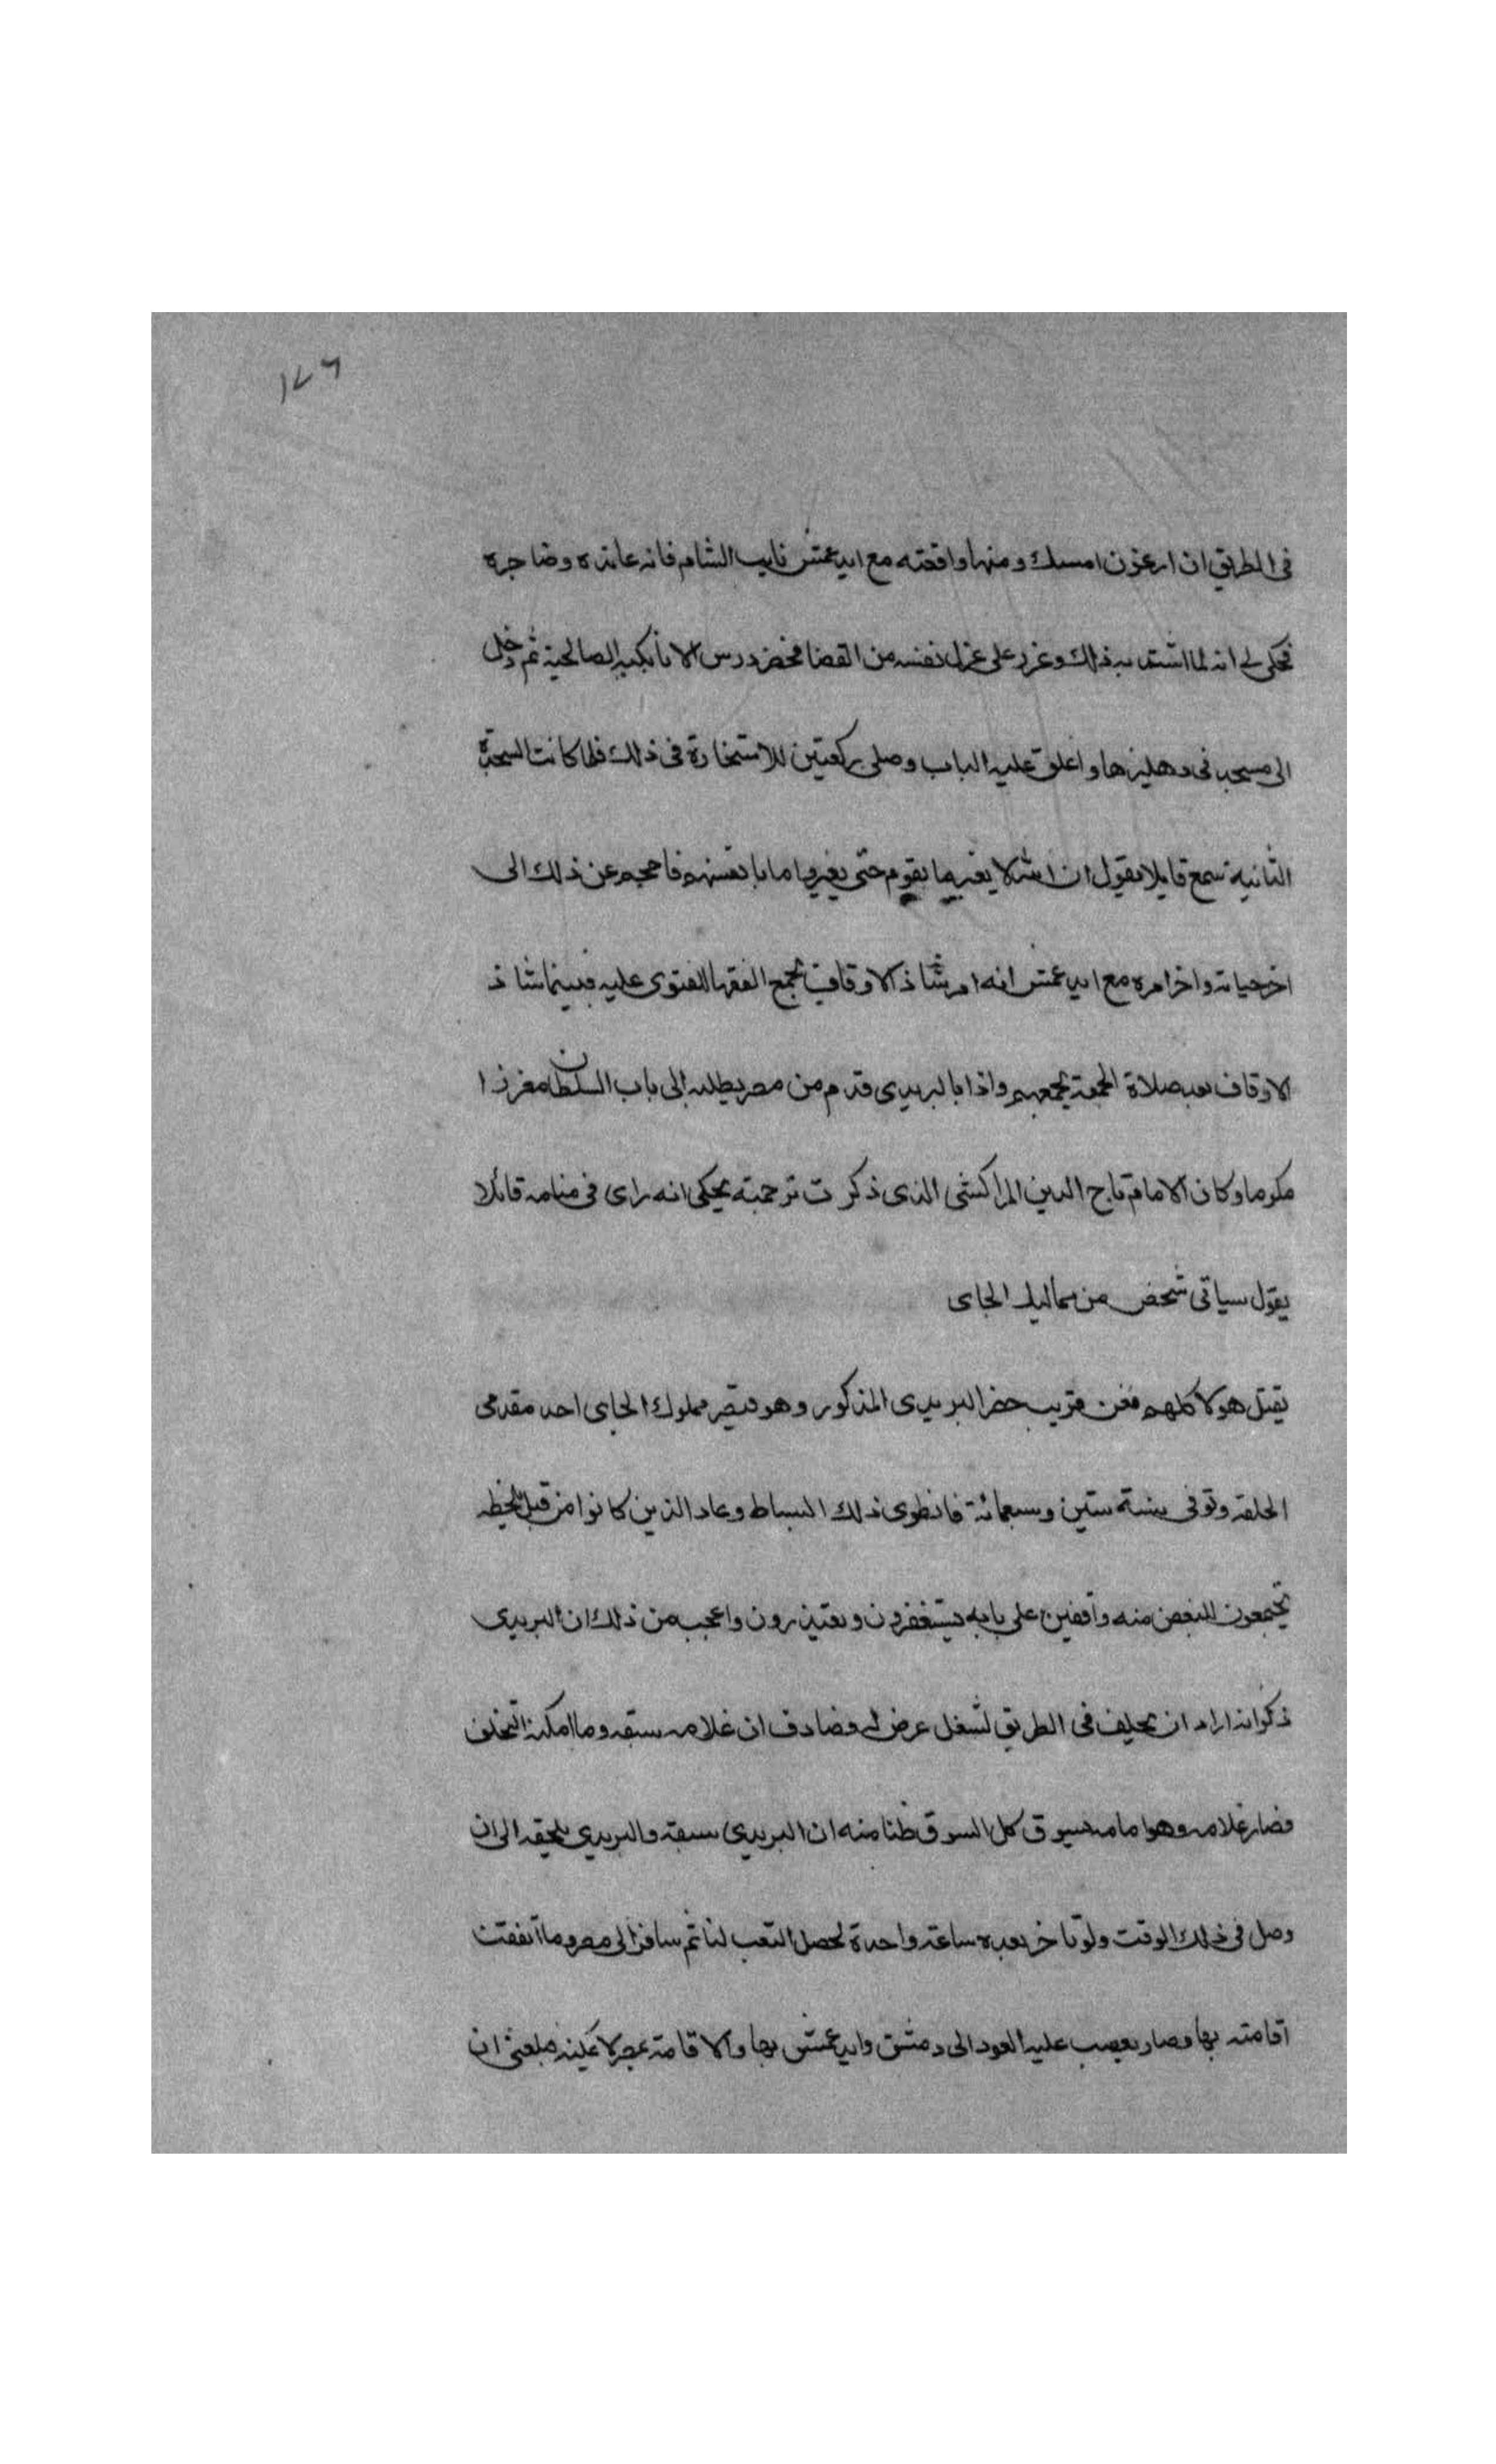 ١٧٦
فى الطريق ان ارغون امسك ومنها واقعته مع ايدغمش نايب الشام فانه عانده وضاجره
فحكى لى انه لما اشتد به ذلك وعزم على عزل نفسه من القضا فحضر درس الاتابكيه الصالحية ثم دخل
الى مسجد فى دهليزها واغلق عليه الباب وصلى ركعتين للاستخارة فى ذلك فلما كانت السجدة
الثانية سمع قايلا يقول ان الله لا يغير ما بقوم حتى يغيروا ما بانفسهم فاحجم عن ذلك الى
اخر حياته واخر امره مع ايدغمش انه امر شاذ الاوقاف بجمع الفقها للفتوى عليه فبينما شاذ
الاوقاف بعد صلاة الجمعة يجمعهم واذا بالبريدى قدم من مصر بطلبه الى باب السلطان مغرزا
مكرما وكان الامام تاج الدين المراكشى الذى ذكرت ترجمته يحكى انه راى فى منامه قائلا
يقول سياتى شخص من مماليك الجاى
يقتل هولا كلهم فعن قريب حضر البريدى المذكور وهو قيصر مملوك الجاى احد مقدمى
الحلقه وتوفى سنة ستين وسبعمائة فانطوى ذلك البساط وعاد الذين كانوا من قبل بلحظه
يجتمعون للبغض منه واقفين على بابه يستغفرون ويعتذرون واعجب من ذلك ان البريدى
ذكر انه اراد ان يحلف فى الطريق لشغل عرض له وصادف ان غلامه سبقه وما امكنه التخلف
فصار غلامه وهو امامه يسوق كل السوق ظنا منه ان البريدى سبقه والبريدى يلحقه الى ان
وصل فى ذلك الوقت ولو تاخر بعده ساعة واحدة لحصل التعب لنا ثم سافر الى مصر وما اتفقت
اقامته بها وصار يصعب عليه العود الى دمشق وايدغمش بها والاقامة بمصر لا تمكنه فبلغنى ان